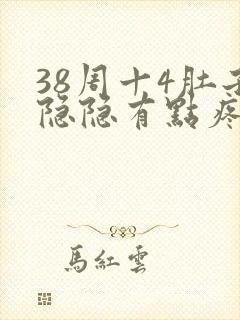 38周十4肚子
隐隐有點疼
馬紅雲